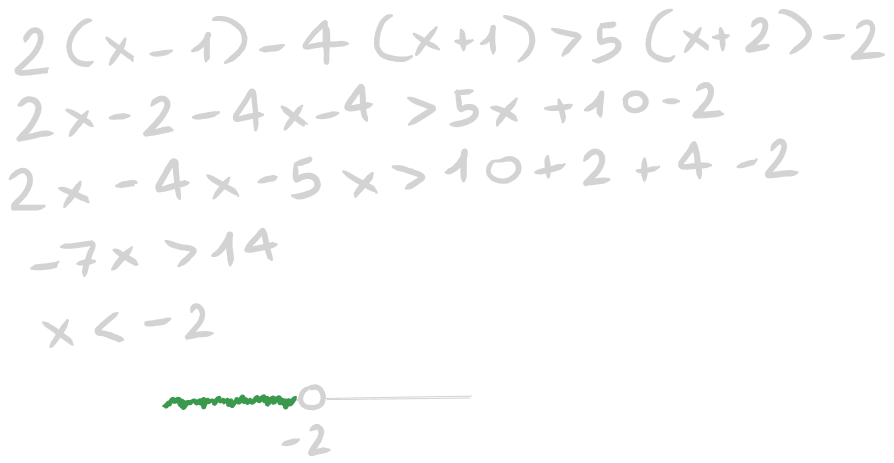 2(x-1)-4(x+1)>5(x+2)-2
2x-2-4x-4>5x+10-2
2x-4x-5x>10+2+4-2
-7x>14
x<-2
-2